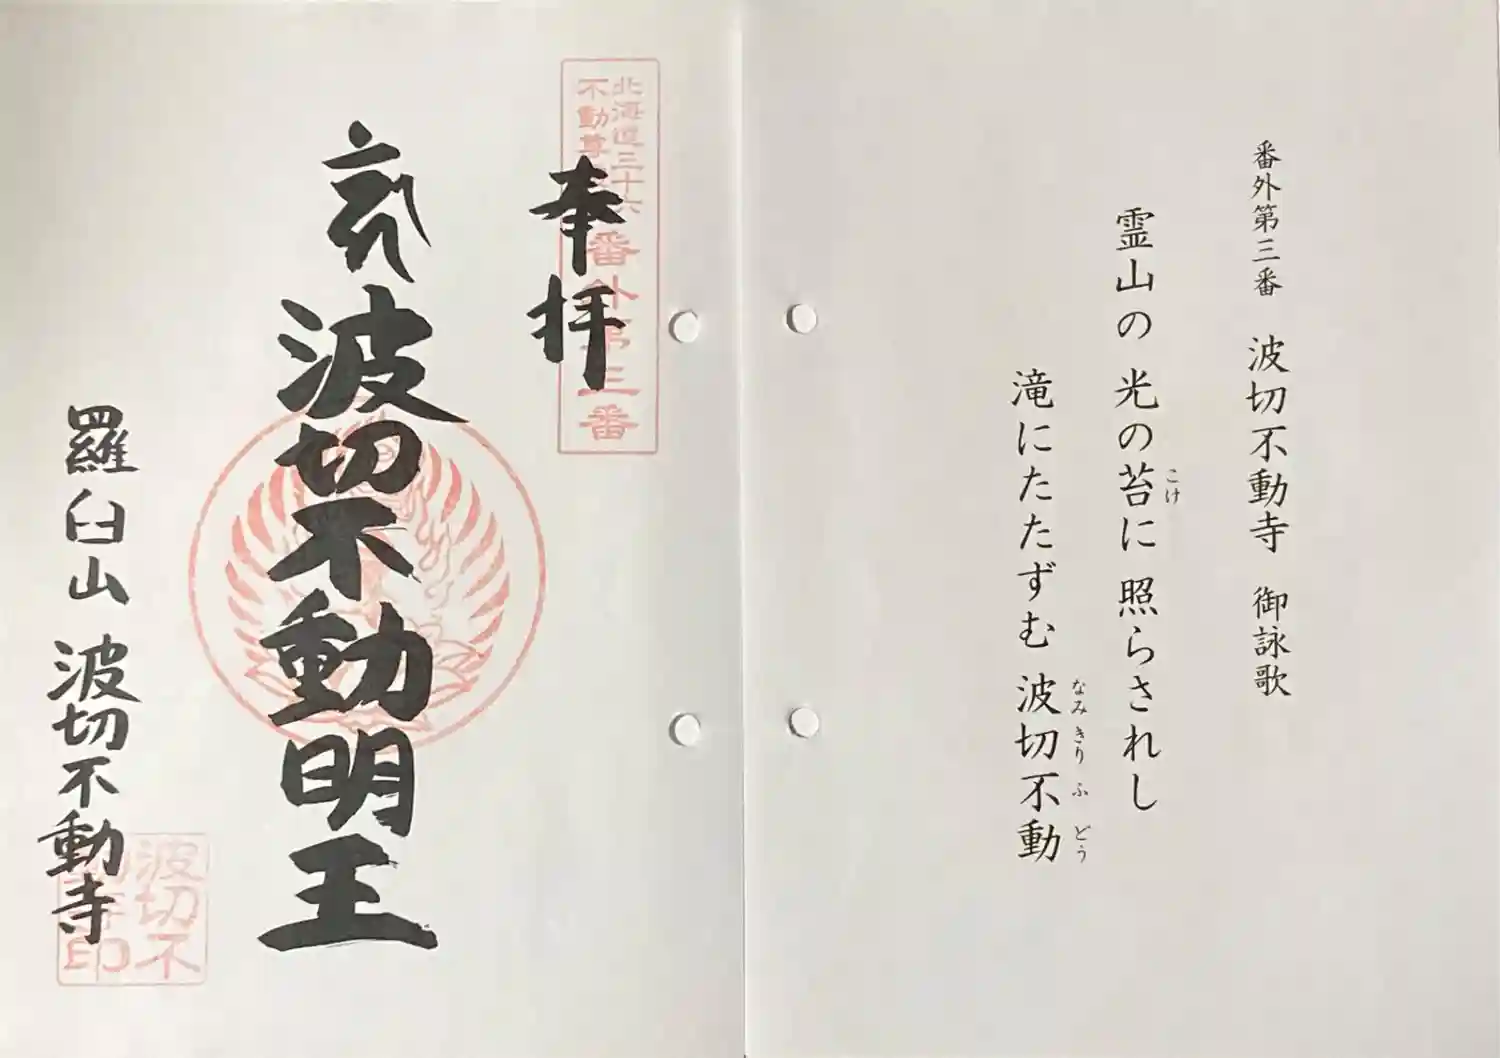 番外第三番 波切不動寺 御詠歌
霊山の 光の苔に 照らされし
こけ
滝にたたずむ 波切不動
なみきり ふ どう
北海道三十六
不動尊
番外第三番
奉拝
波切不動明王
羅臼山 波切不動寺
波切不
動寺印